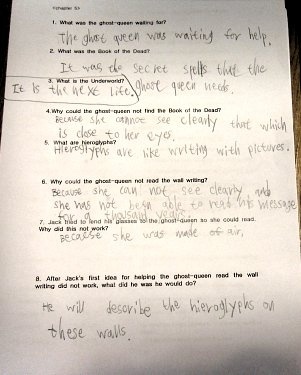 <chapter 5>
1. What was the ghost-queen waiting for?
The ghost queen was waiting for help.
2. What was the Book of the Dead?
It was the secret spells that the
ghost queen needs.
3. What is the Underworld?
It Is the next life.
4.Why could the ghost-queen not find the Book of the Dead?
Because she cannot see clearly that which
is close to her eyes.
5. What are hieroglyphs?
Hieroglyphs are like writing with pictures.
6. Why could the ghost-queen not read the wall writing?
Because she can not see clearly, and
she has not been able to read his message
for a thousand years.
7. Jack tried to lend his glasses to the ghost-queen so she could read.
Why did this not work?
Because she was made of air.
8. After Jack's first idea for helping the ghost-queen read the wall
writing did not work, what did he was he would do?
He will describe the hieroglyphs on
these walls.